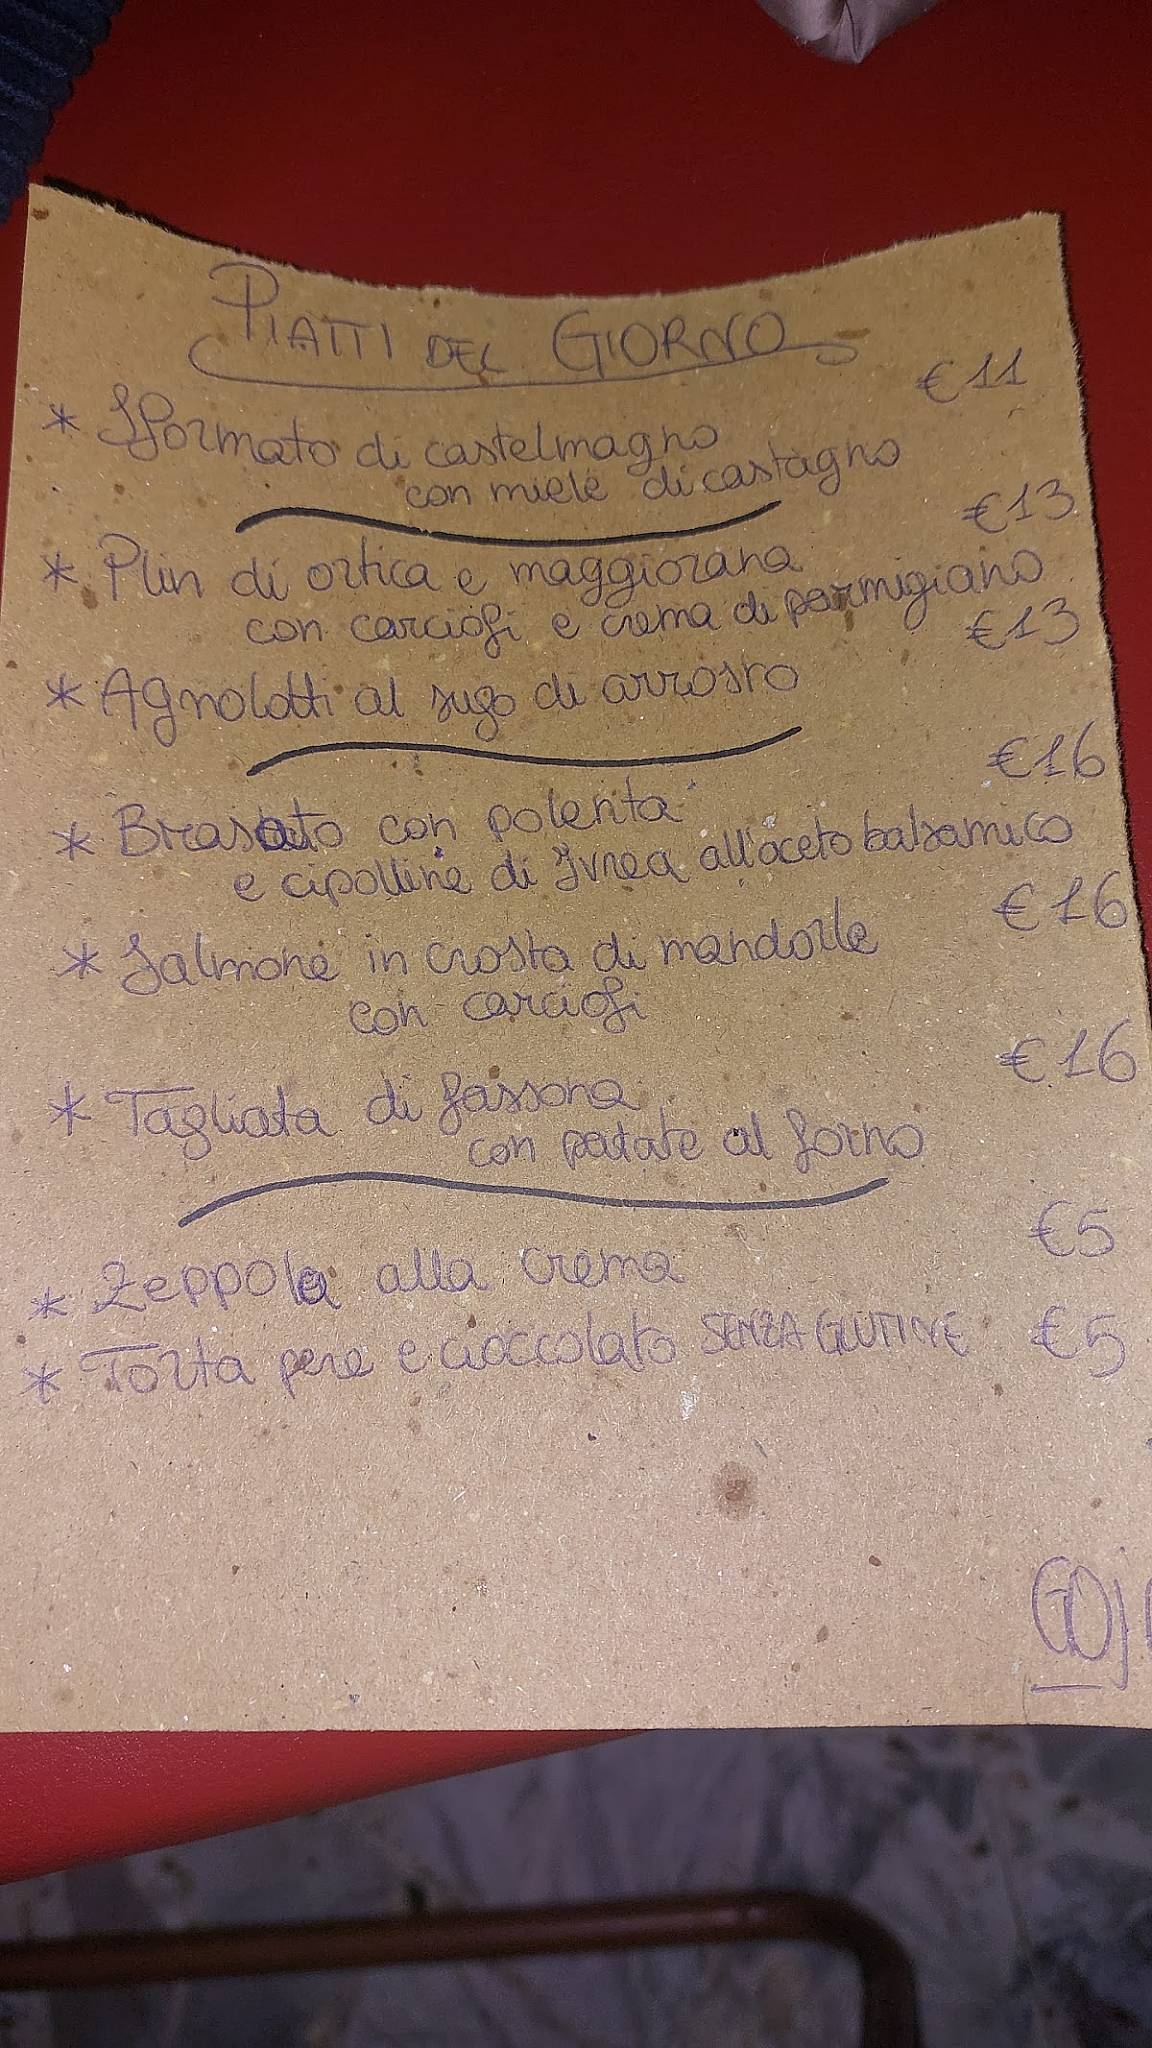 PIATTI DEL GIORNO
€11
* Sformato di castelmagno
con miele di castagno
€13
* Plin di ortica e maggiorana
con carciofi e crema di parmigiano
€13
* Agnolotti al sugo di arrosto
€16
* Brasato con polenta
e cipolline di Ivrea all'aceto balsamico
€16
* Salmone in crosta di mandorle
con carciofi
€16
* Tagliata di fassona
con patate al forno
€5
* Zeppola alla crema
* Torta pere e cioccolato SENZA GLUTINE €5